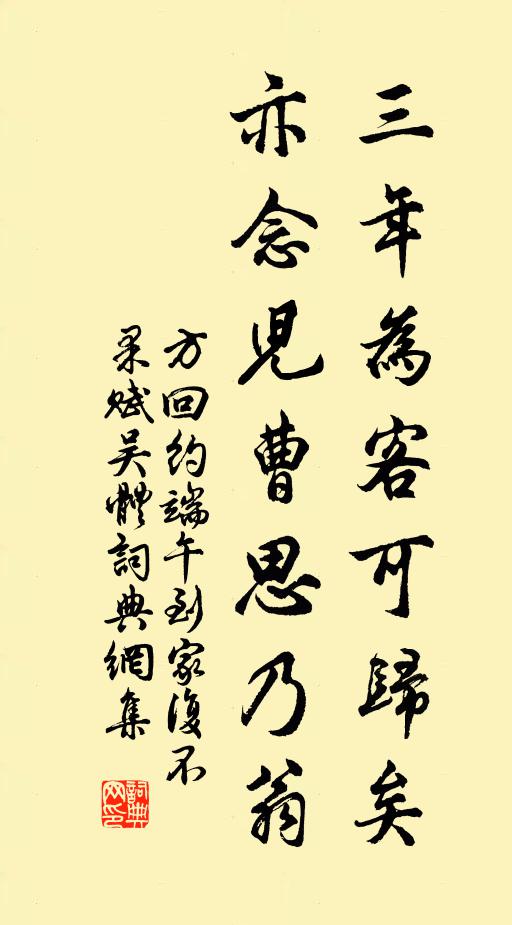 三年為客可歸矣
亦念兒曹思乃翁
方回約端午到家復不
果賦吳體詞典網集
詞典網印